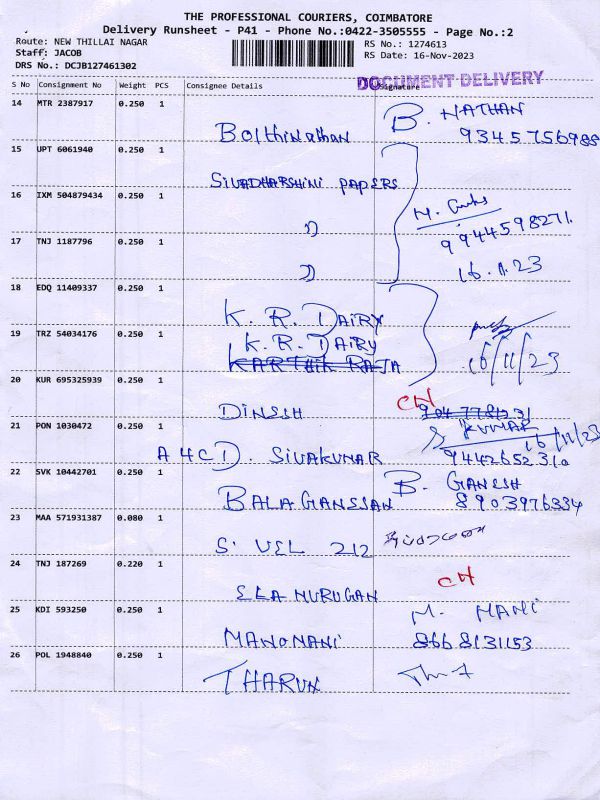 THE PROFESSIONAL COURIERS, COIMBATORE
Delivery Runsheet - P41 - Phone No.:0422-3505555 - Page No.:2
Route: NEW THILLAI NAGAR
RS No.: 1274613
Staff: JACOB
RS Date: 16-Nov-2023
DRS No.: DCJB127461302
DOCUMENT DELIVERY
S No Consignment No Weight PCS Consignee Details Signature
14 MTR 2387917 0.250 1
Boithinathan B. NATHAN
9345756988
15 UPT 6061940 0.250 1
SIVADHARSHINI PAPERS
16 IXM 504879434 0.250 1
9944598271.
17 TNJ 1187796 0.250 1
18 EDQ 11409337 0.250 1
K. R. DAIRY
19 TRZ 54034176 0.250 1
K. R. DAIRY
KARTHIK RAJA
16/11/23
20 KUR 695325939 0.250 1
DINESH CH
21 PON 1030472 0.250 1
S KUMAR 16/11/23
A4C D. SIVAKUMAR 9442652310
22 SVK 10442701 0.250 1
BALAGANESSAN B. GANESH
8903976334
23 MAA 571931387 0.080 1
S. VEL 212
24 TNJ 187269 0.220 1
ELA MURUGAN CH
25 KDI 593250 0.250 1
MANOMANI M. MANI
8668131153
26 POL 1948840 0.250 1
THARUN